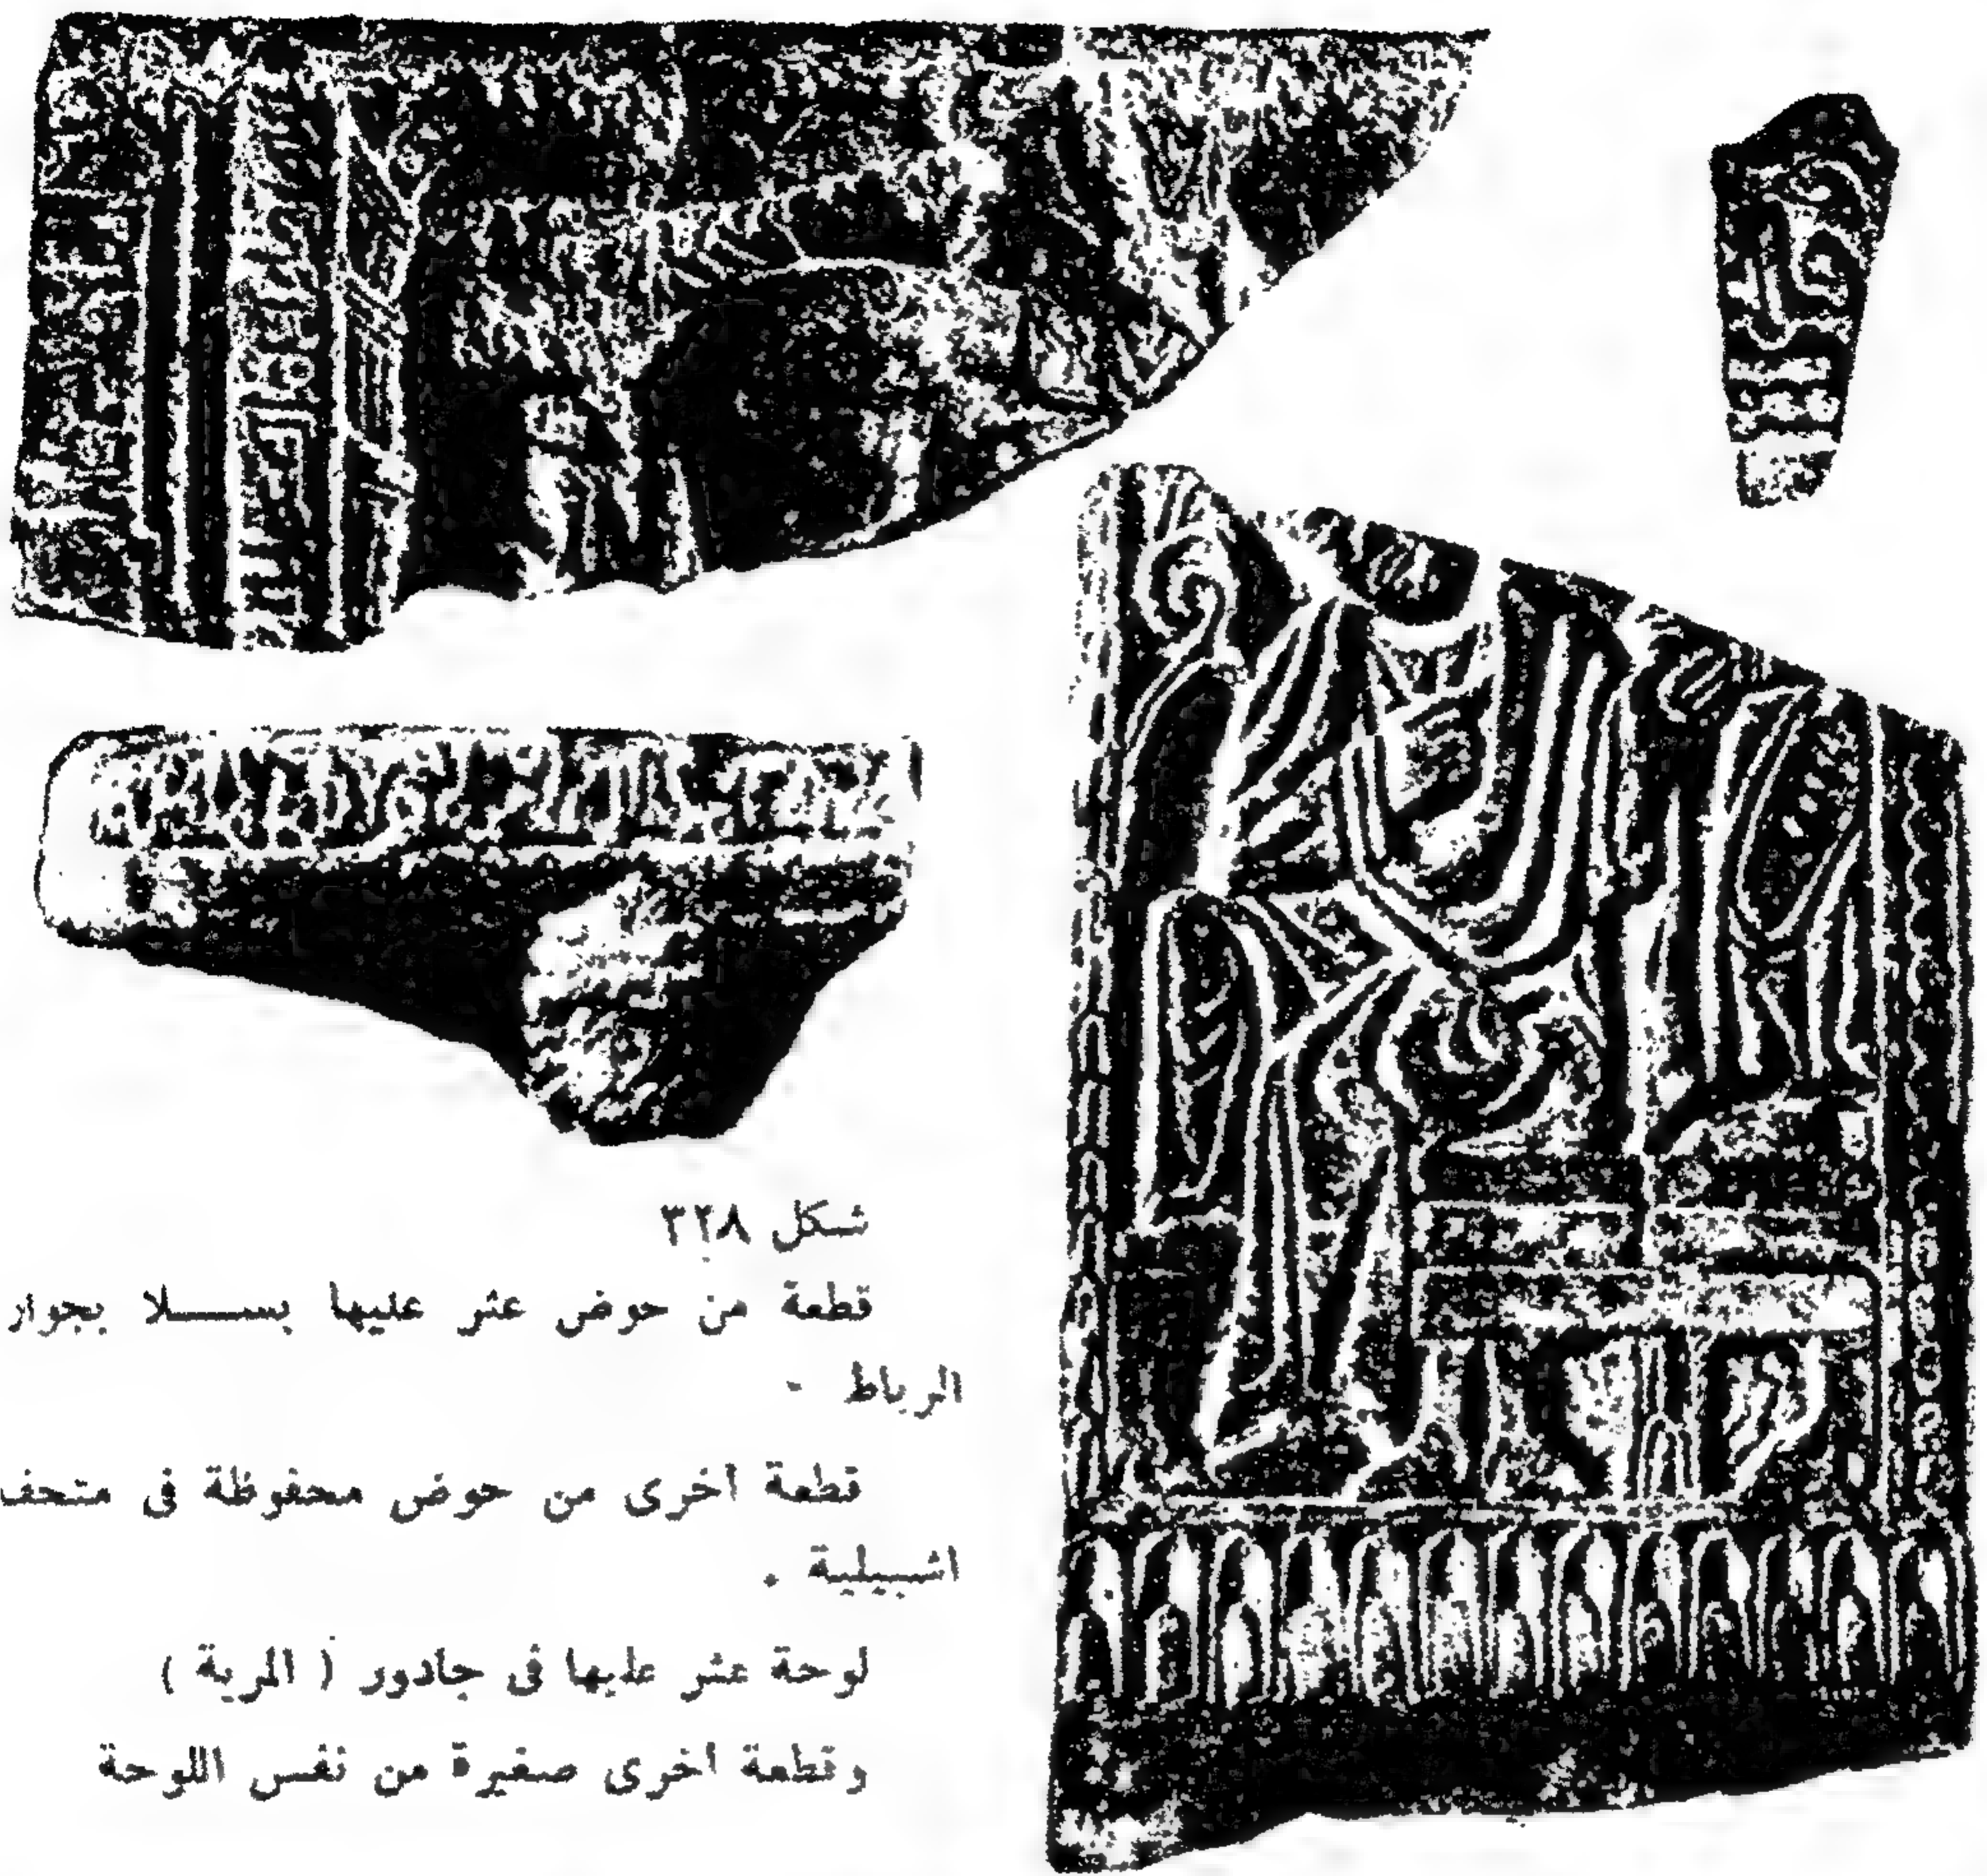 شكل ٣٢٨
قطعة من حوض عثر عليها بســـلا بجوار
الرباط -
قطعة أخرى من حوض محفوظة فى متحف
اشبيلية .
لوحة عثر عليها فى جادور ( المرية )
وقطعة أخرى صغيرة من نفس اللوحة